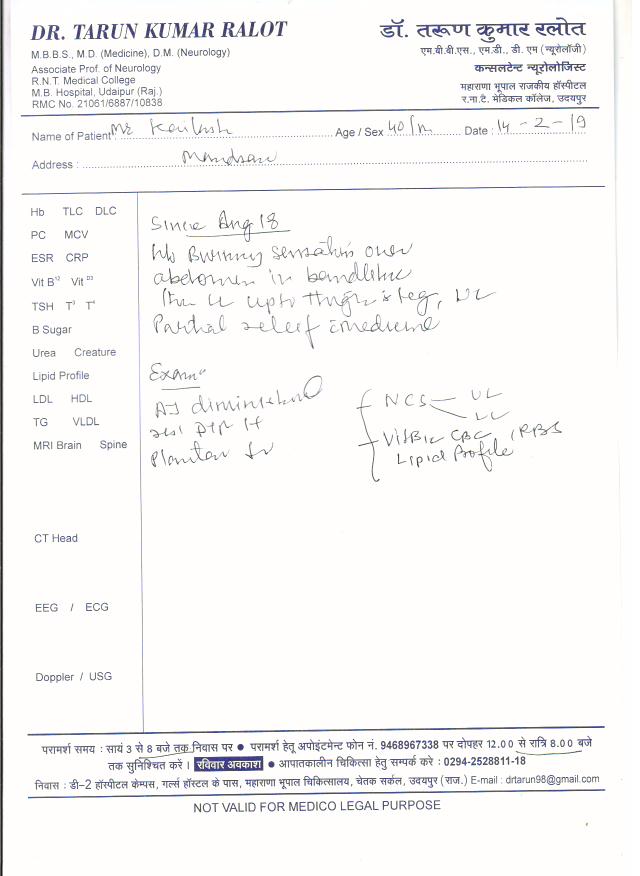 DR. TARUN KUMAR RALOT
M.B.B.S., M.D. (Medicine), D.M. (Neurology)
Associate Prof. of Neurology
R.N.T. Medical College
M.B. Hospital, Udaipur (Raj.)
RMC No. 21061/6887/10838
डॉ. तरूण कुमार रलोत
एम.बी.बी.एस., एम.डी., डी. एम (न्यूरोलॉजी)
कन्सलटेन्ट न्यूरोलोजिस्ट
महाराणा भूपाल राजकीय हॉस्पीटल
र.ना.टै. मेडिकल कॉलेज, उदयपुर
Name of Patient: Mr Age / Sex 40/m Date : 14-2-19
Address :
Hb TLC DLC
PC MCV
ESR CRP
Vit B12 Vit D3
TSH T3 T4
B Sugar
Urea Creature
Lipid Profile
LDL HDL
TG VLDL
MRI Brain Spine
CT Head
EEG / ECG
Doppler / USG
Since Aug 18
h/o Burning sensation over
abdomen in bandlike
upto thigh & leg,
Partial relief medicine
Exam
AJ diminished
rest DTR
Plantar
NCS - UL
LL
Vit B12 CBC, RBS
Lipid Profile
परामर्श समय : सायं 3 से 8 बजे तक निवास पर ● परामर्श हेतू अपोइंटमेन्ट फोन नं. 9468967338 पर दोपहर 12.00 से रात्रि 8.00 बजे
तक सुनिश्चित करें । रविवार अवकाश ● आपातकालीन चिकित्सा हेतु सम्पर्क करे : 0294-2528811-18
निवास : डी-2 हॉस्पीटल केम्पस, गर्ल्स हॉस्टल के पास, महाराणा भूपाल चिकित्सालय, चेतक सर्कल, उदयपुर (राज.) E-mail : drtarun98@gmail.com
NOT VALID FOR MEDICO LEGAL PURPOSE